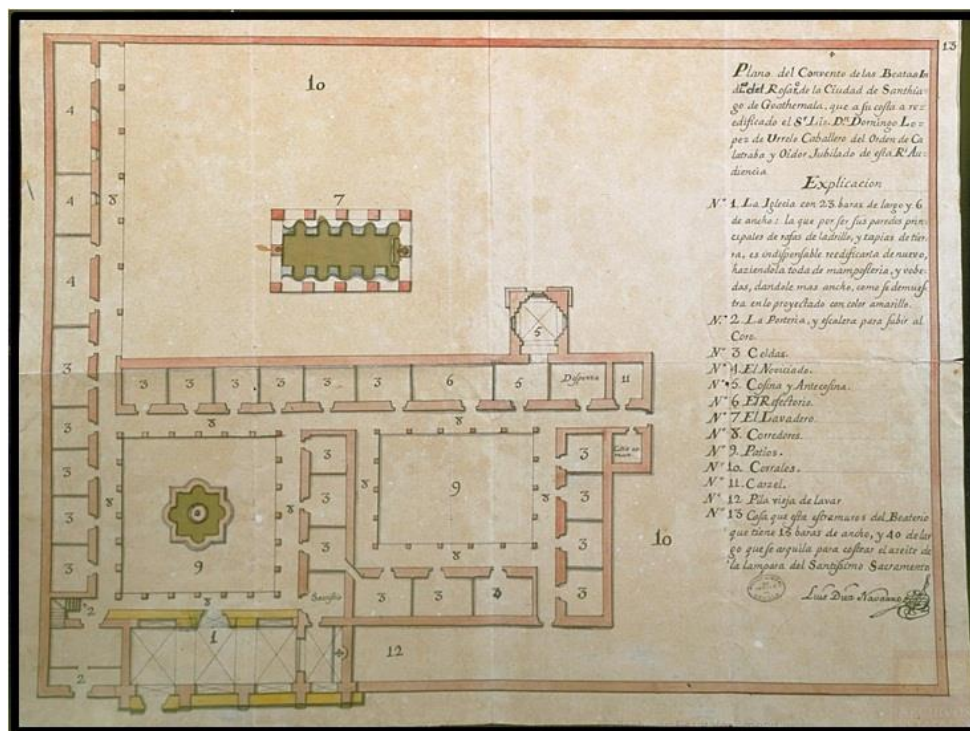 13
Plano del Convento de las Beatas In
d.as del Rosar.o de la Ciudad de Santhia-
go de Goathemala, que a su costa a re=
edificado el S.r Lic. D.n Domingo Lo=
pez de Urrelo Caballero del Orden de Ca
latraba y Oidor Jubilado de esta R.l Au=
diencia
Explicacion
N.o 1. La Iglecia con 23 baras de largo y 6
de ancho: la que por ser sus paredes prin-
cipales de rafas de ladrillo, y tapias de tier-
ra, es indispensable reedificarla de nuevo,
haziendola toda de mamposteria, y vobe-
das, dandole mas ancho, como se demues-
tra en lo proyectado con color amarillo.
N.o 2. La Porteria, y escalera para subir al
Coro.
N.o 3 Celdas.
N.o 4. El Noviciado.
N.o 5. Cosina y Antecosina.
N.o 6 El Refectorio.
N.o 7 El Lavadero.
N.o 8. Corredores.
N.o 9. Patios.
N.o 10. Corrales.
N.o 11. Carzel.
N.o 12 Pila vieja de lavar
N.o 13 Casa que esta estramuros del Beaterio
que tiene 15 baras de ancho, y 40 de lar
go que se arquila para costear el aseite de
la lampara del Santissimo Sacramento
Luis Diez Navarro
10
4
4
8
7
4
5
3
3
3
3
3
3
3
6
5
Dispensa
11
3
8
8
3
3
3
8
9
3
3
8
8
3
8
9
8
3
3
10
3
3
9
8
3
3
3
8
Sacristia
2
1
12
2